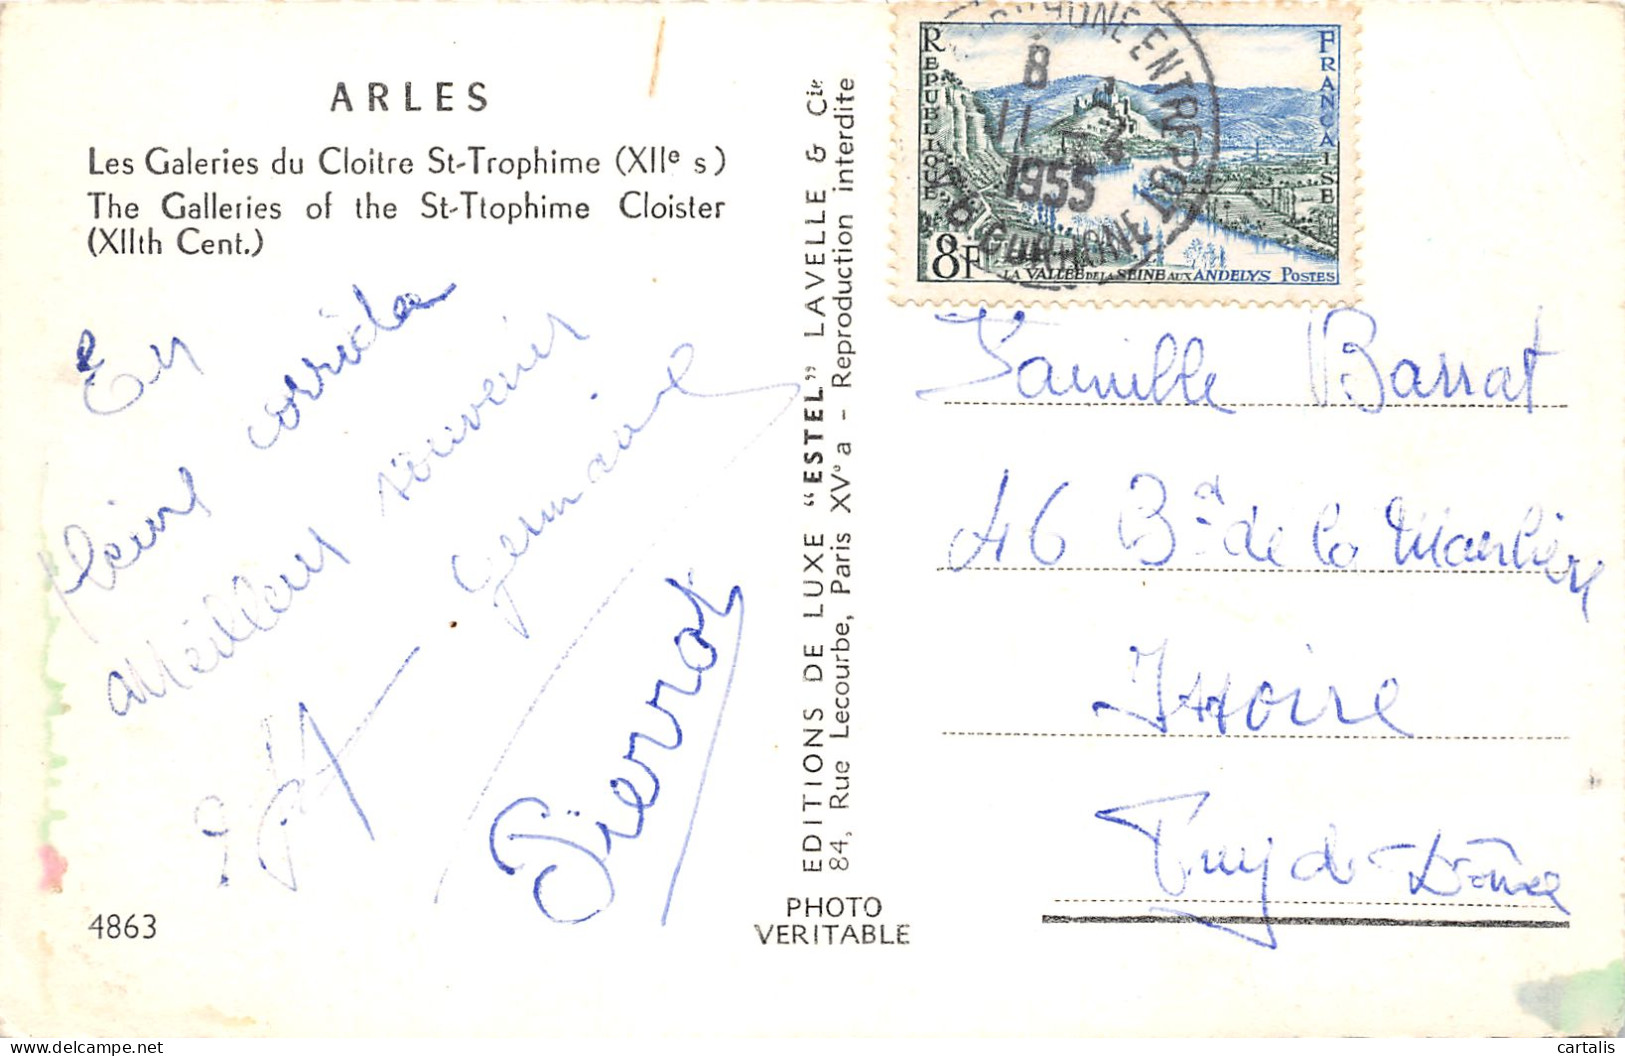 ARLES
Les Galeries du Cloitre St-Trophime (XIIe s)
The Galleries of the St-Ttophime Cloister
(XIIth Cent.)
En
pleine corrida
Meilleur souvenir
Germaine
Pierrot
4863
EDITIONS DE LUXE "ESTEL" LAVELLE & Cie
84, Rue Lecourbe, Paris XVe a - Reproduction interdite
PHOTO
VERITABLE
REPUBLIQUE
FRANCAISE
8F
LA VALLEE DE LA SEINE AUX ANDELYS POSTES
RHONE ENTREPOT
B
11 - 3
1955
B. DU RHONE
Famille Barrat
46 Bd de la Manlière
Issoire
Puy de Dôme
cartalis